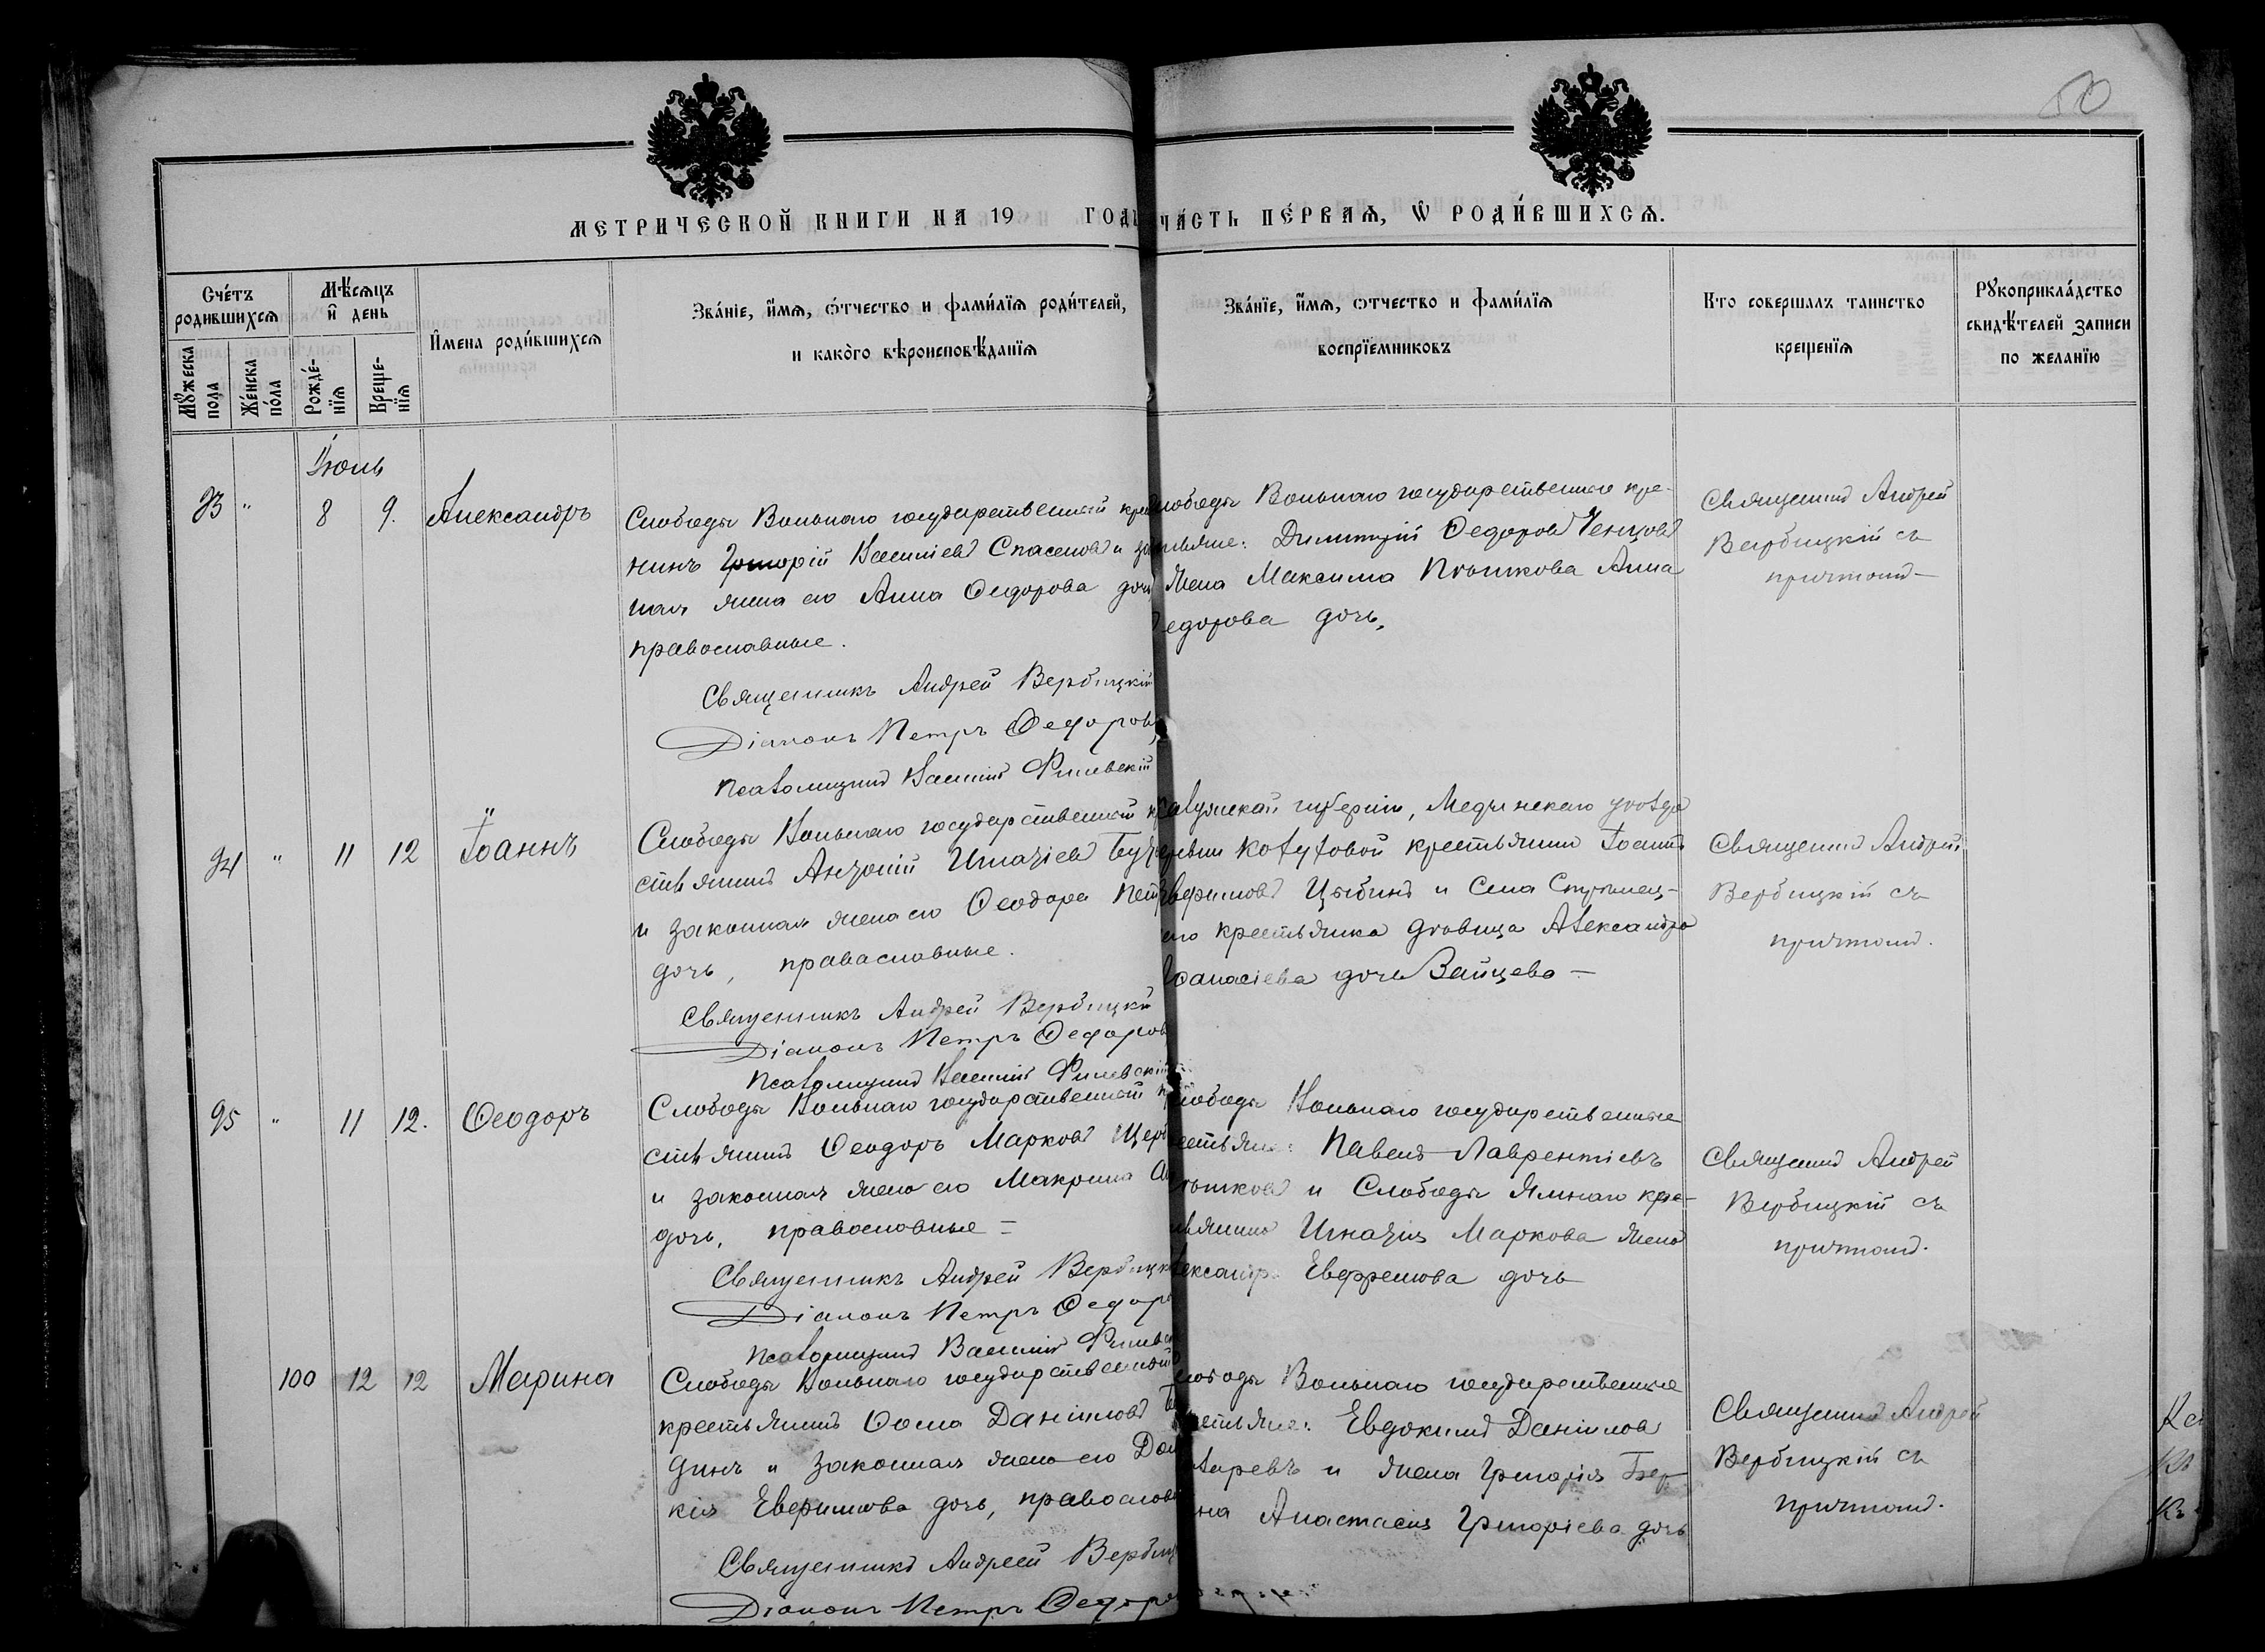 50
МЕТРИЧЕСКОЙ КНИГИ НА 19 ГОДЪ ЧА́СТЬ ПЕ́РВАѦ, Ѿ РОДИ́ВШИХСѦ.
Сче́тъ родившихсѧ
Мѣ́сѧцъ и҆ день
И҆мена роди́вшихсѧ
Зва́нїе, и҆́мѧ, ѻ҆́тчество и фами́лїѧ роди́телей,
и како́гѡ вѣроисповѣ́данїѧ
Зва́нїе, и҆́мѧ, ѻтчество и фами́лїѧ
воспрїемниковъ
Кто совершалъ таинство
крещенїѧ
Рꙋкоприкла́дство
свидѣ́телей записи
по желанїю
Мꙋ́жеска пола
Же́нска по́ла
Рожде́нїѧ
Креще́нїѧ
Іюнь
93 " 8 9. Александръ
Слободы Вольнаго государственный
нинъ Григорій Васильевъ Спасенов и
ная жена его Анна Ѳедорова
православные.
Священникъ Андрей Вербицкій
Діаконъ Петръ Ѳедоров
Псаломщикъ Василій Филевскій
слободы Вольнаго государственные кре-
стьяне: Димитрій Ѳедоровъ Ченцовъ
жена Максима Пъшкова Анна
Ѳедорова дочь,
Священникъ Андрей
Вербицкій съ
причтомъ —
94 " 11 12 Іоаннъ
Слободы Вольнаго государственный
стьянинъ Антоній Игнатіевъ
и законная жена его Ѳеодора
дочь, православные.
Священникъ Андрей Вербицкій
Діаконъ Петръ Ѳедоров
Псаломщикъ Василій Филевскій
Калужской губерніи, Медынскаго уѣзда
крестьянинъ Іоаннъ
Цыбинъ и Села
крестьянка дѣвица Александра
Аѳанасіева дочь Зайцева —
Священникъ Андрей
Вербицкій съ
причтомъ.
95 " 11 12. Ѳеодоръ
Слободы Вольнаго государственный
стьянинъ Ѳеодоръ Марковъ
и законная жена его Макрина
дочь, православные =
Священникъ Андрей Вербицкій
Діаконъ Петръ Ѳедоров
Псаломщикъ Василій Филевскій
слободы Вольнаго государственные
крестьяне: Павелъ Лаврентіевъ
и Слободы Ямнаго кре-
стьянина Игнатія Маркова жена
Александра Евфремова дочь
Священникъ Андрей
Вербицкій съ
причтомъ.
100 12 12 Марина
Слободы Вольнаго государственный
крестьянинъ Ѳома Даніиловъ
динъ и законная жена его
кія Евфимова дочь, православные
Священникъ Андрей Вербицкій
Діаконъ Петръ Ѳедоров
слободы Вольнаго государственные
крестьяне: Евдокимъ Даніилов
и жена Григорія Бер-
Анастасія Григоріева дочь
Священникъ Андрей
Вербицкій съ
причтомъ.